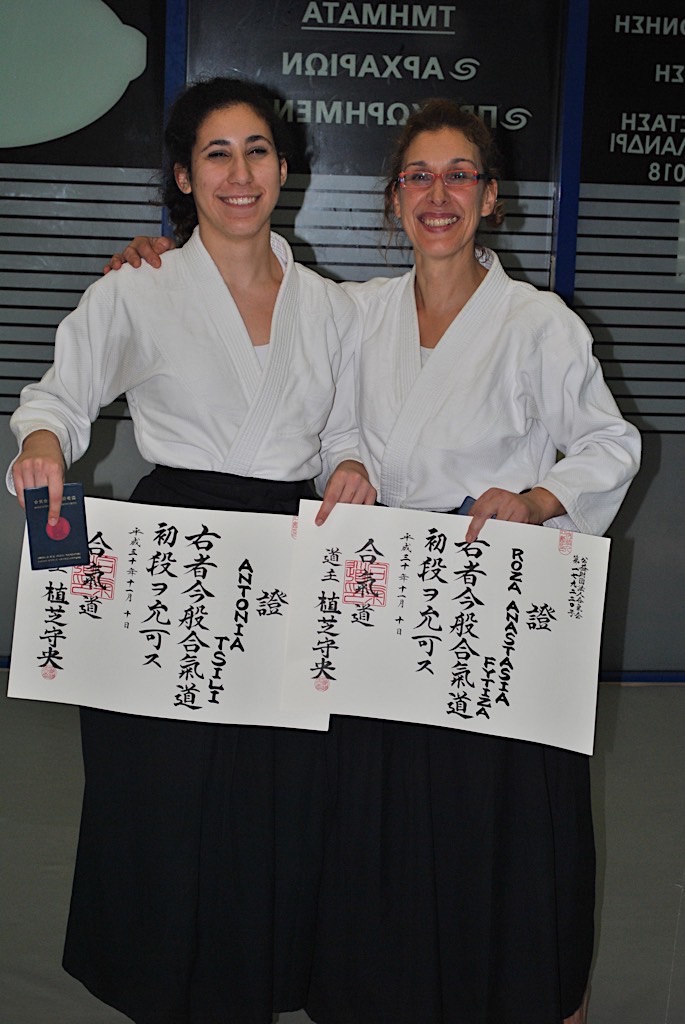 ΤΜΗΜΑΤΑ
ΑΡΧΑΡΙΩΝ
ΟΝΗΣΗ
ΣΗ
ΕΤΑΣΗ
ΛΑΝΔΡΙ
018
證
ANTONIA
TSILI
右者今般合氣道
初段ヲ允可ス
平成三十年十一月 十日
合氣道
主 植芝守央
公益財団法人合気会
證
ROZA ANASTASIA
FYTIZA
右者今般合氣道
初段ヲ允可ス
平成三十年十一月 十日
合氣道
道主 植芝守央